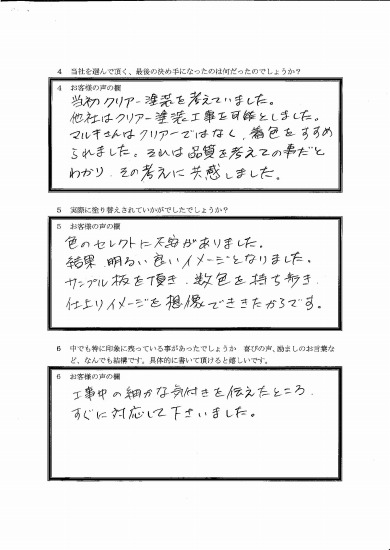 4 当社を選んで頂く、最後の決め手になったのは何だったのでしょうか？
4 お客様の声の欄
当初クリアー塗装を考えていました。
他社はクリアー塗装工事を可能としました。
マルキさんはクリアーではなく、着色をすすめ
られました。それは品質を考えての事だと
わかり、その考えに共感しました。
5 実際に塗り替えされていかがでしたでしょうか？
5 お客様の声の欄
色のセレクトに不安がありました。
結果、明るい良いイメージとなりました。
サンプル板を頂き、数色を持ち歩き、
仕上りイメージを想像できたからです。
6 中でも特に印象に残っている事があったでしょうか 喜びの声、励ましのお言葉な
ど、なんでも結構です。具体的に書いて頂けると嬉しいです。
6 お客様の声の欄
工事中の細かな気付きを伝えたところ、
すぐに対応して下さいました。